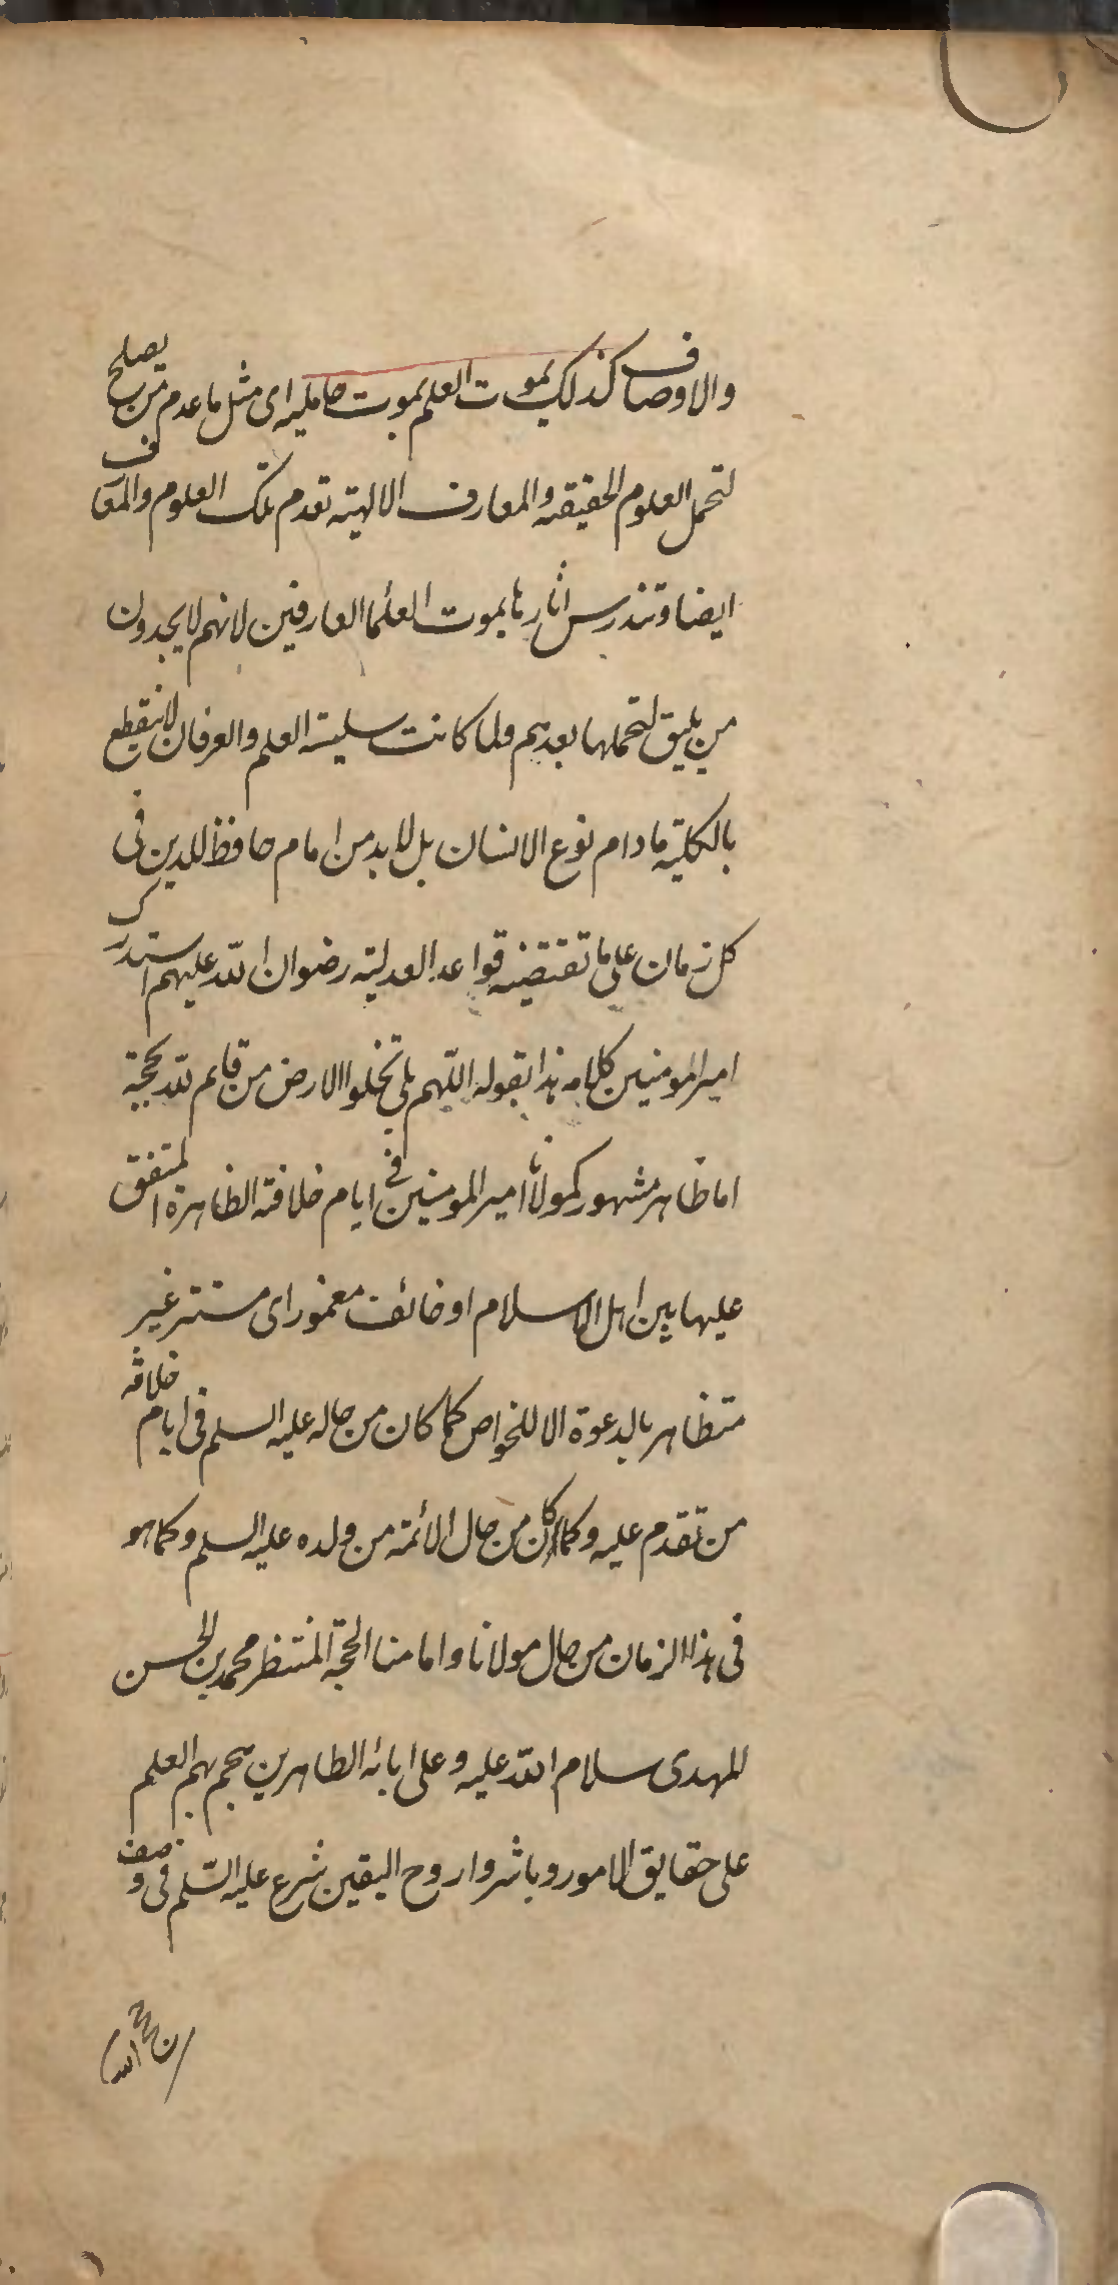 والاوصاف كذلك يموت العلم بموت حامليه اى مثل ما عدم من يصلح
لتحمل العلوم الحقيقه والمعارف الالهيته تعدم تلك العلوم والمعارف
ايضا وتندرس اثارها بموت العلما العارفين لانهم لا يجدون
من يليق لتحملها بعدهم ولما كانت سلسة العلم والعرفان لا ينقطع
بالكلية ما دام نوع الانسان بل لا بد من امام حافظ للدين فى
كل زمان على ما تقتضيه قواعد العدلية رضوان الله عليهم استدرك
امير المومنين كلامه هذا بقوله اللهم بلى لا تخلوا الارض من قايم لله بحجة
اما ظاهر مشهور كمولانا امير المومنين فى ايام خلافته الظاهرة المتفق
عليها بين اهل الاسلام او خائف مغمور اى مستتر غير
متظاهر بالدعوة الا للخواص كما كان من حاله عليه السلم فى ايام خلافه
من تقدم عليه وكما كان من حال الائمة من ولده عليه السلم وكما هو
فى هذا الزمان من حال مولانا وامامنا الحجة المنتظر محمد بن الحسن
المهدى سلام الله عليه وعلى ابائه الطاهرين هجم بهم العلم
على حقايق الامور وباشروا روح اليقين شرع عليه السلم فى وصف